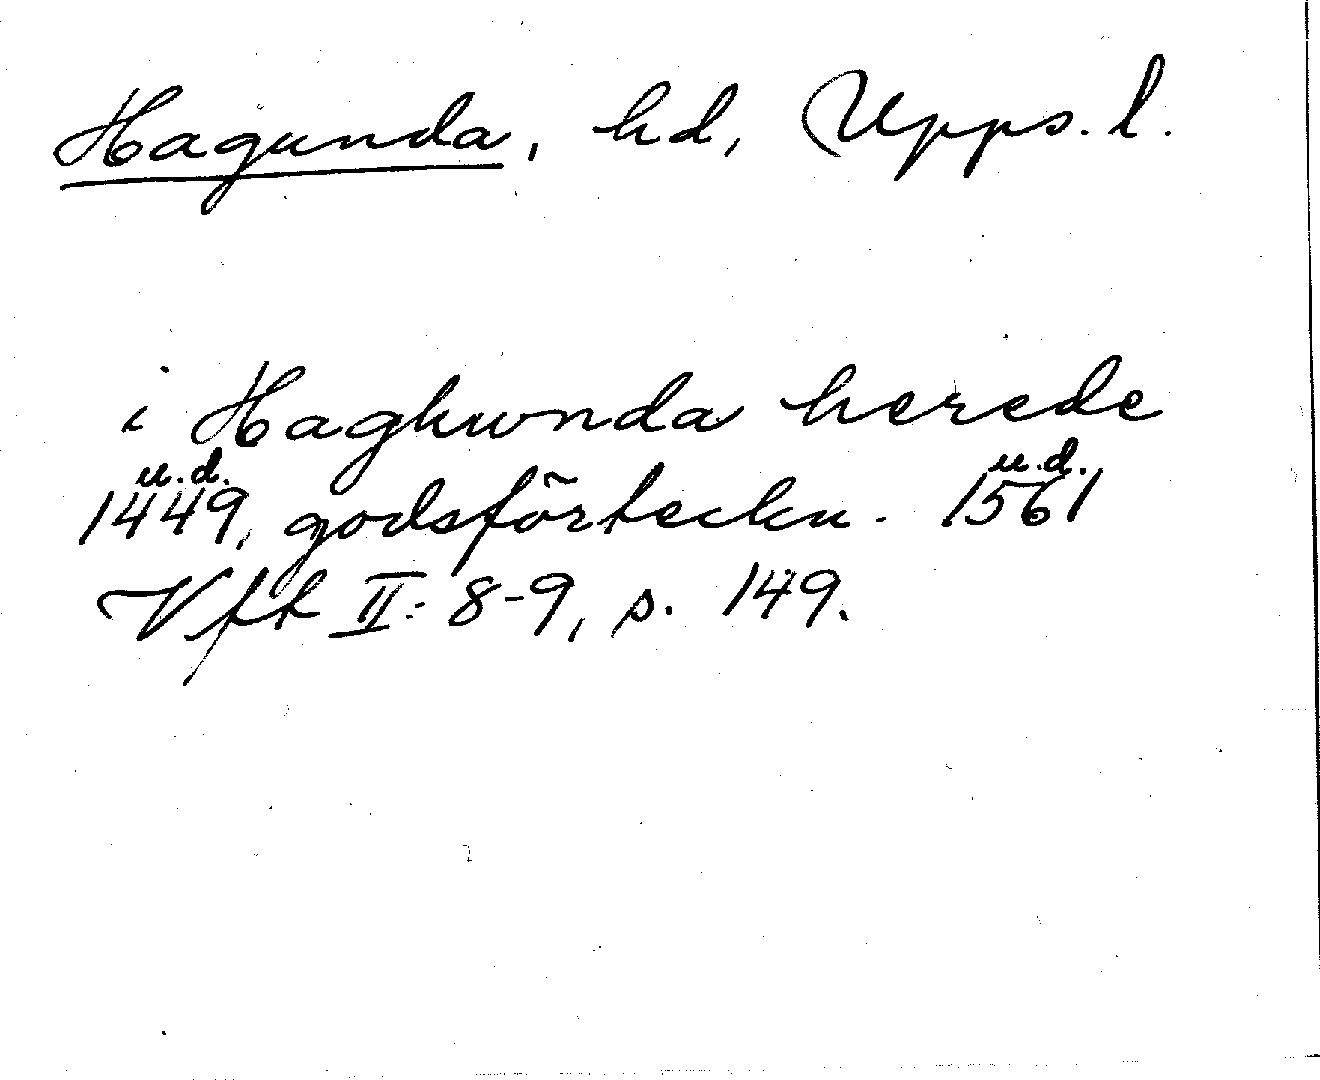 Hagunda, hd, Upps. l.
i Haghwnda herede
u.d. u.d.
1449, godsförteckn. 1561
Vfk II: 8-9, s. 149.